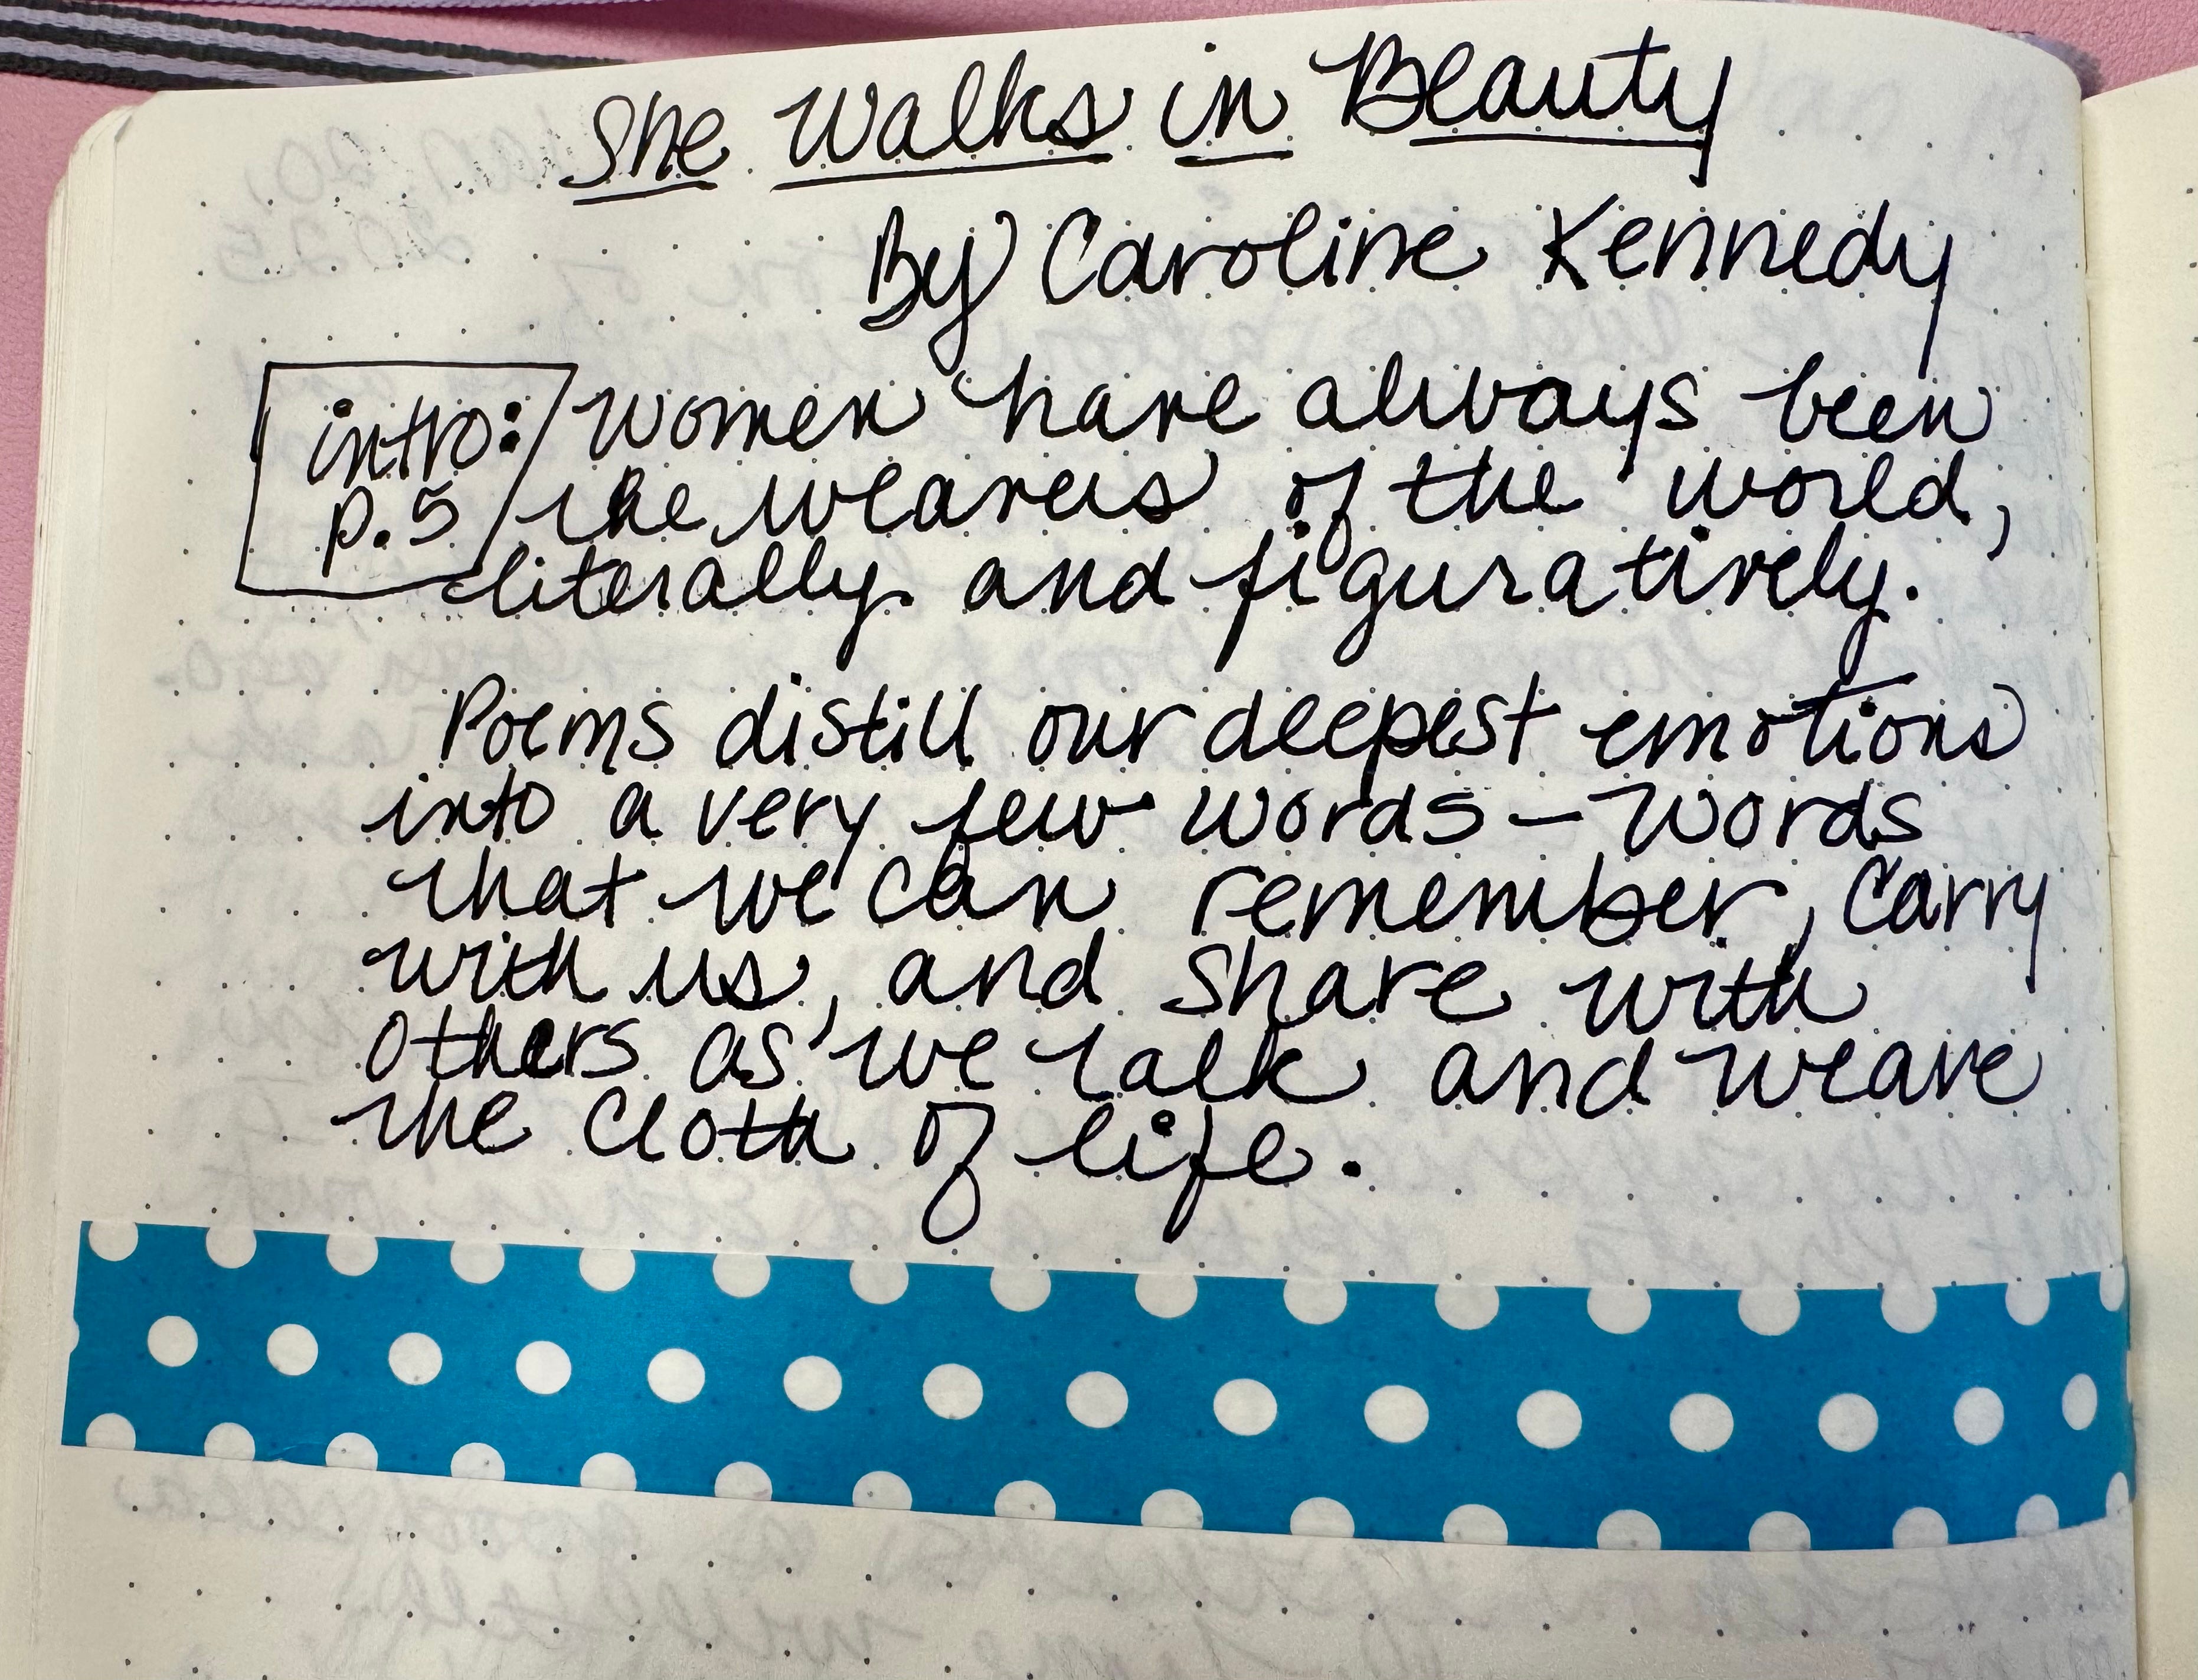 She Walks in Beauty
By Caroline Kennedy
intro: Women have always been
p.5 the weavers of the world,
literally and figuratively.
Poems distill our deepest emotions
into a very few words — words
that we can remember, carry
with us, and share with
others as we talk and weave
the cloth of life.